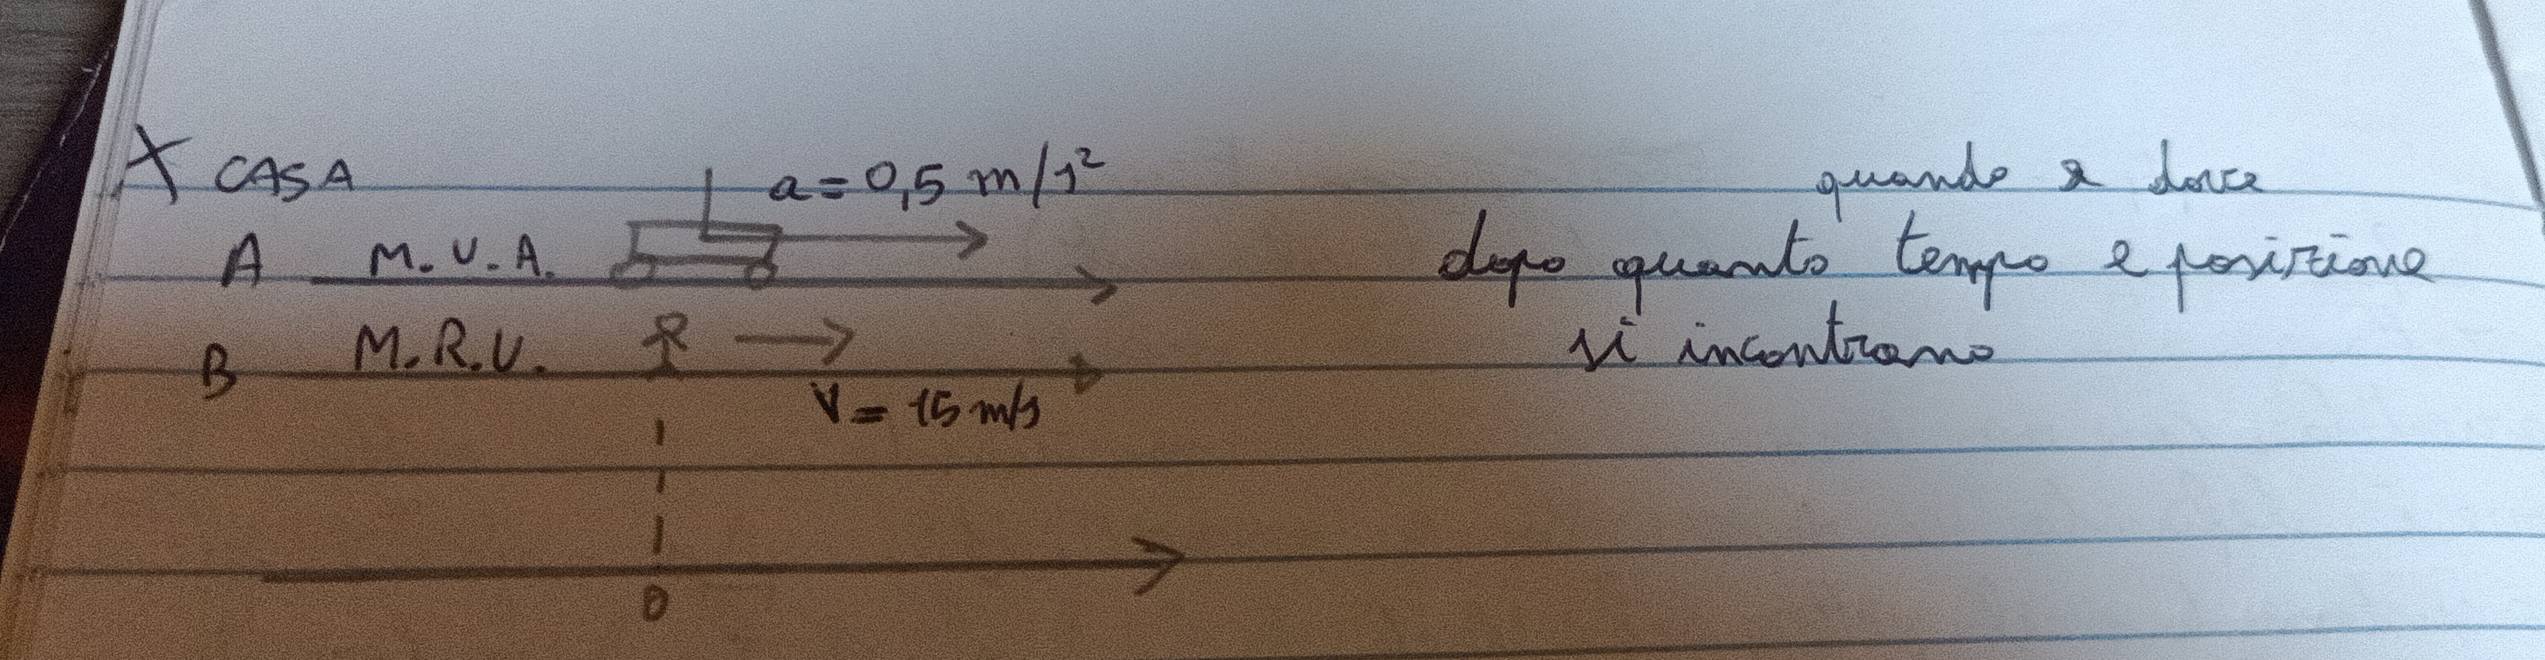 X CASA
a = 0,5 m/s²
quando e dove
A M.U.A.
dopo quanto tempo e posizione
B M.R.U.
si incontrano
V = 15 m/s
0